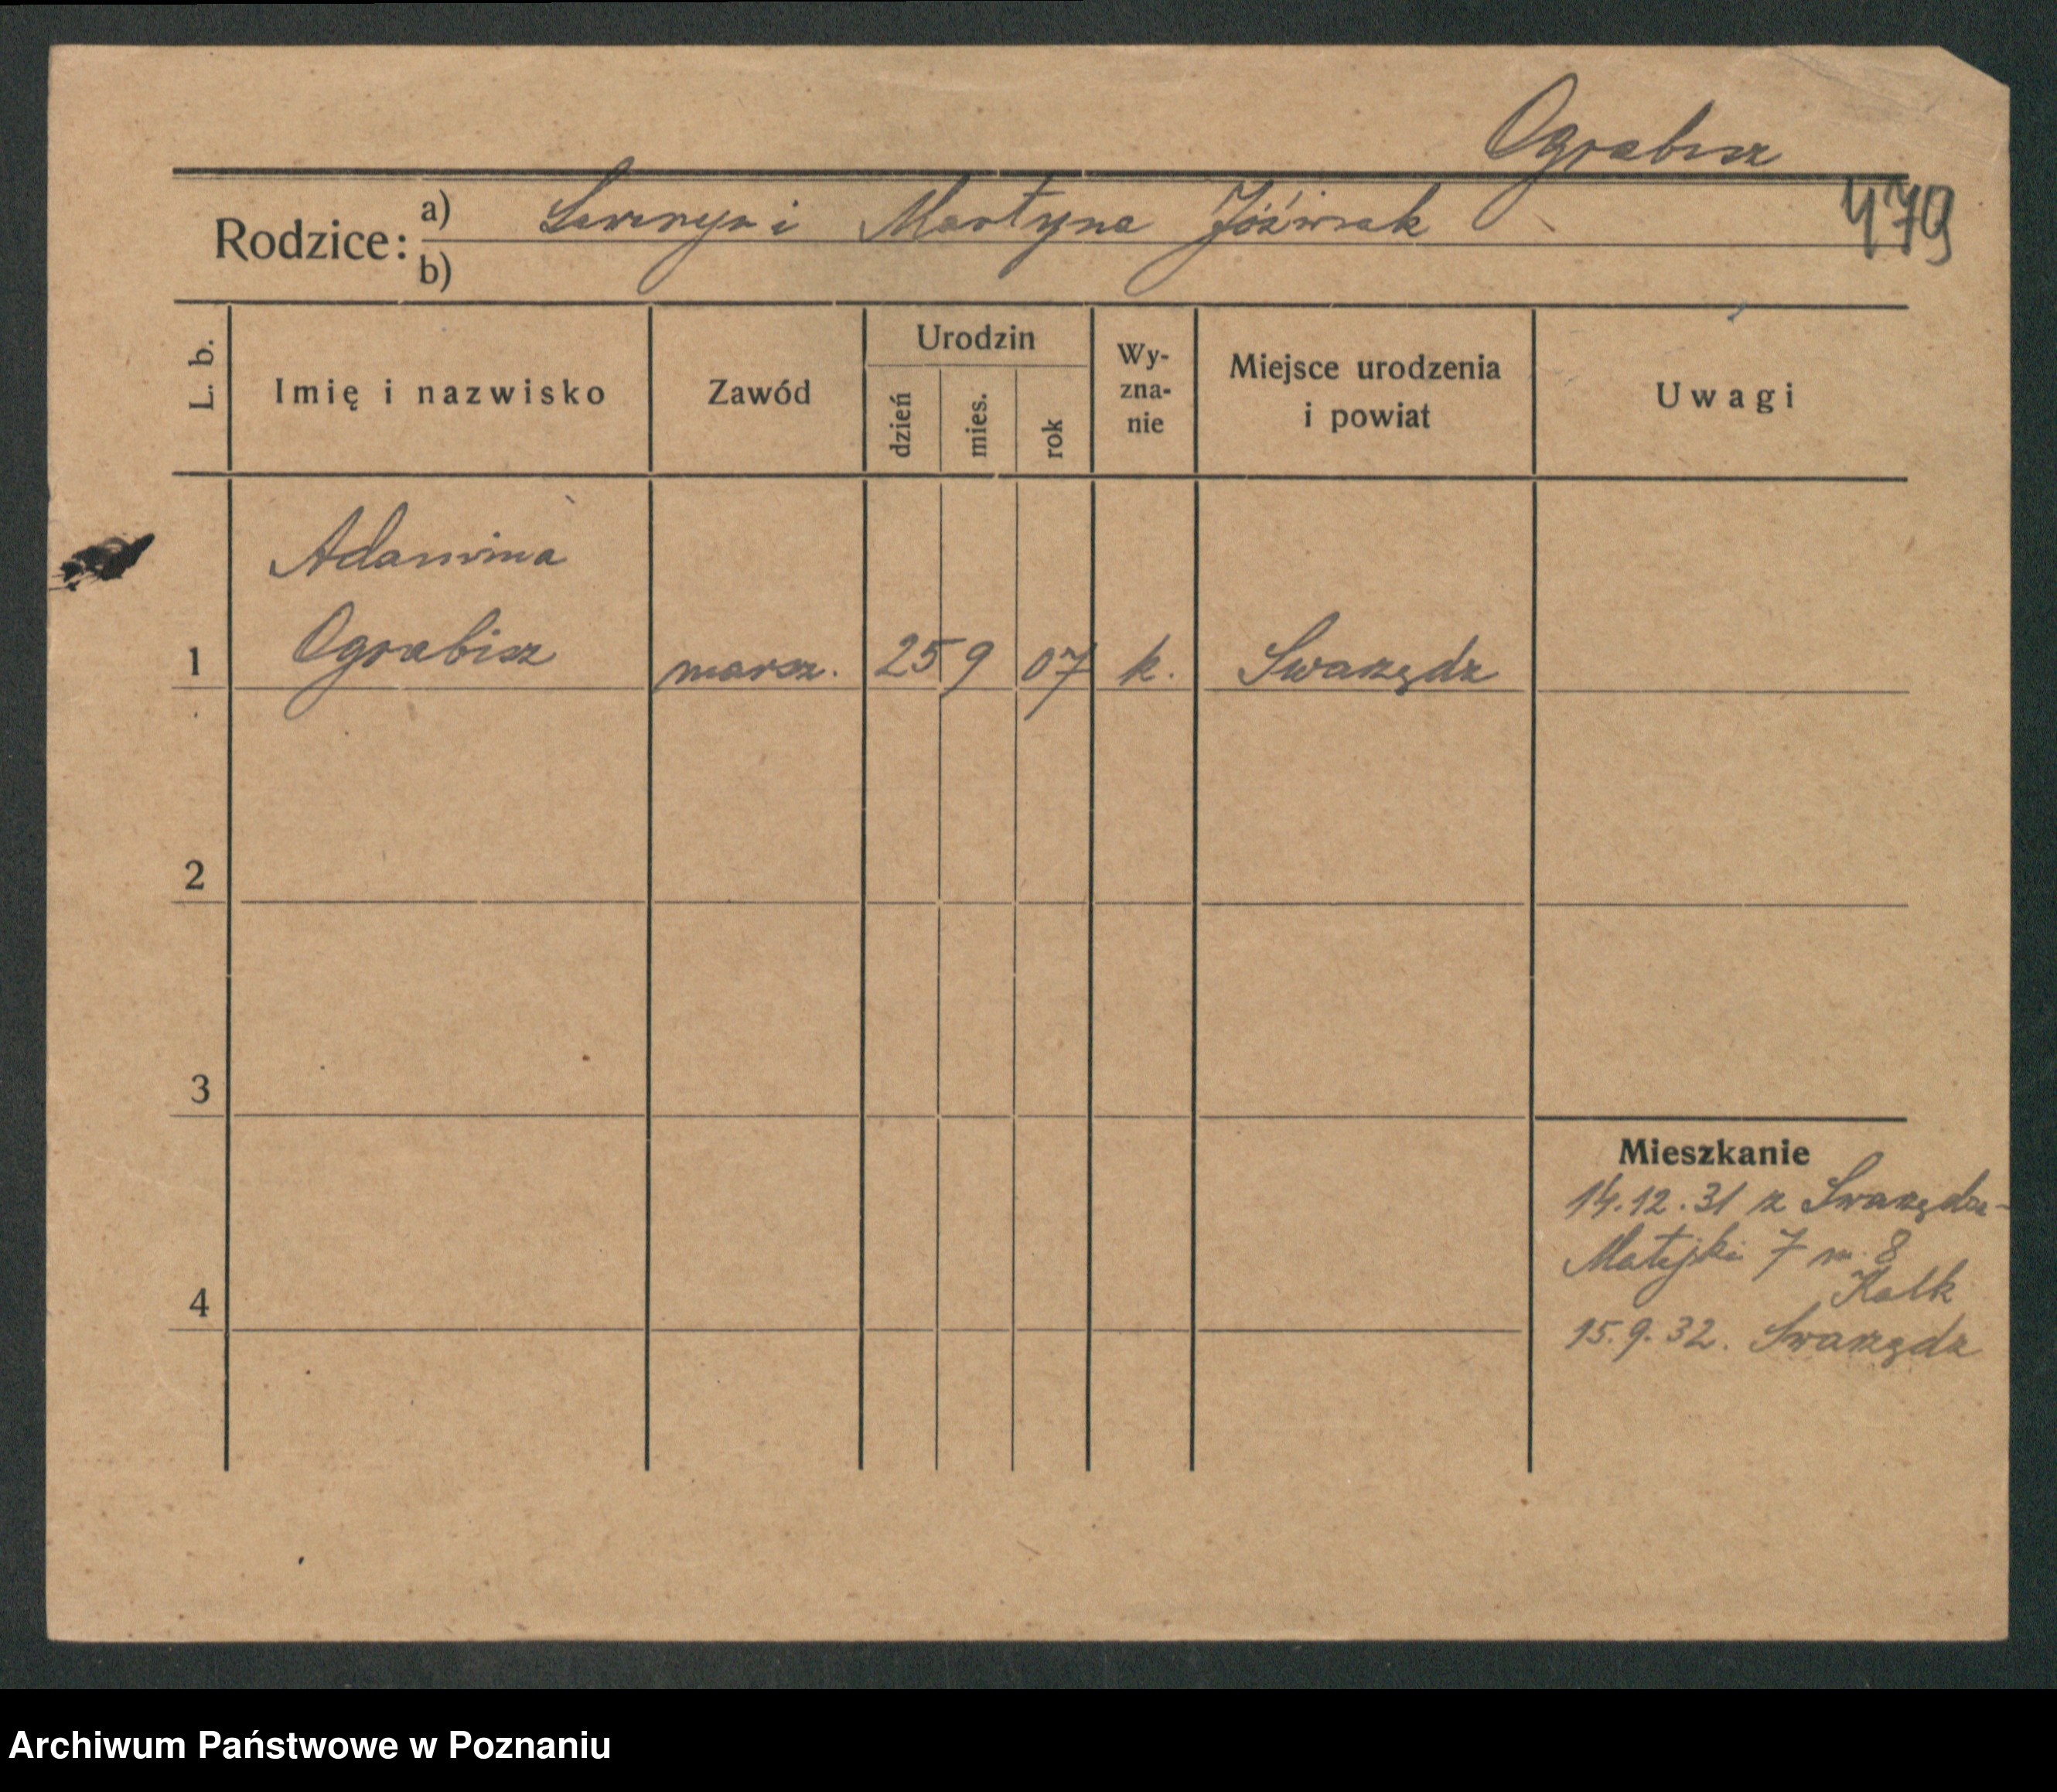 Ograbisz
479
Rodzice: a) Ławryn i Martyna Jóźwiak
b)
L. b. Imię i nazwisko Zawód Urodzin dzień mies. rok Wyzna-nie Miejsce urodzenia i powiat Uwagi
Adamina
1 Ograbisz 25 9 07 k. Swarzędz
2
3
Mieszkanie
14.12.31 z Swarzędza-
Matejki 7 m. 8
4 Kalk
15.9.32. Swarzędz
Archiwum Państwowe w Poznaniu